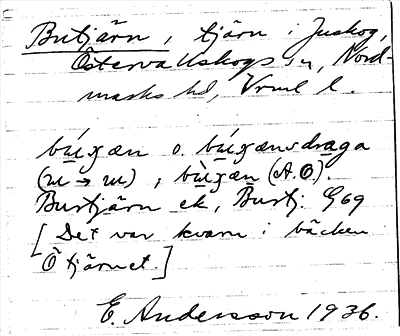 Butjärn, tjärn i Juskog,
Östervallskogs sn, Nord-
marks hd, Vrml l.
bɯ́ɟæn o. bɯ́ɟænsdraga
(ɯ → ɯ), bɯ̀ɟæn (A.O).
Burtjärn ek, Burtj: G69
[Det var kvarn i bäcken
Ö tjärnet]
E. Andersson 1936.